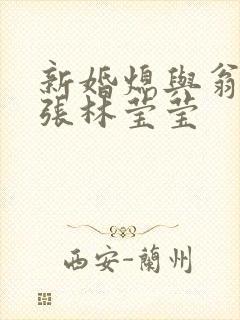 新婚熄與翁
張林莹莹
西安-蘭州